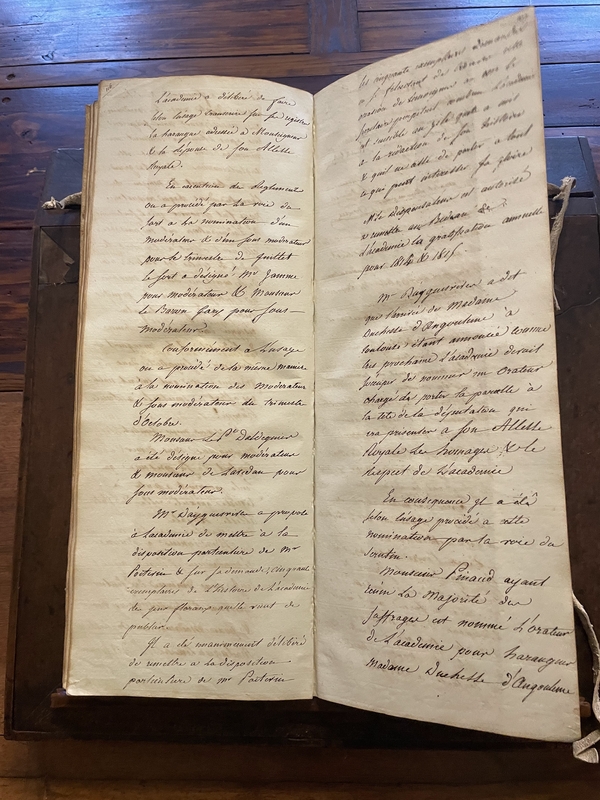 L'academie a délibéré de faire
selon l'usage transcrire sur ses registres
la harangue adressée à Monseigneur
& la réponse de son Altesse
Royale.
En execution du Reglement
on a procédé par la voie du
sort à la nomination d'un
moderateur & d'un sous moderateur
pour le trimestre de Juillet
le sort a désigné Mr Jamme
pour modérateur & Monsieur
le Baron Gary pour sous-
modérateur
Conformément à L'usage
on a procédé de la même maniere
à la nomination des Moderateur
& sous modérateur du trimestre
d'Octobre.
Monsieur Le Pt Daldeguier
a été désigné pour modérateur
& monsieur de Lavedan pour
sous modérateur.
Mr Dayguesvives a proposé
à L'academie de mettre à la
disposition particuliere de Mr
Poitevin & sur sa demande, cinquante
exemplaires de L'histoire de L'academie
des jeux floraux qu'elle vient de
publier.
Il a été unanimement délibéré
de remettre à la disposition
particuliere de mr Poitevin
les cinquante exemplaires demandés
& se félicitant de
occasion de temoigner
secretaire perpetuel combien L'academie
est sensible au zele qu'il a mis
à la rédaction de son histoire
& qu'il ne cesse de porter à tout
ce qui peut interesser sa gloire
M. Le Dispensateur est autorisé
à remettre au Bedeau de
L'academie la gratification annuelle
pour 1814 & 1815.
Mr Dayguesvives a dit
que L'arrivée de Madame
Duchesse d'Angouleme à
toulouse étant annoncée comme
très prochaine L'academie devait
s'occuper de nommer un Orateur
chargé de porter la parolle à
la tete de la députation qui
ira présenter à son Altesse
Royale Les homages & le
Respect de L'academie
En consequence Il a été
selon L'usage procédé à cette
nomination par la voie du
scrutin.
Monsieur Pinaud ayant
réuni La Majorité des
suffrages est nommé L'orateur
de L'academie pour haranguer
Madame Duchesse d'Angouleme